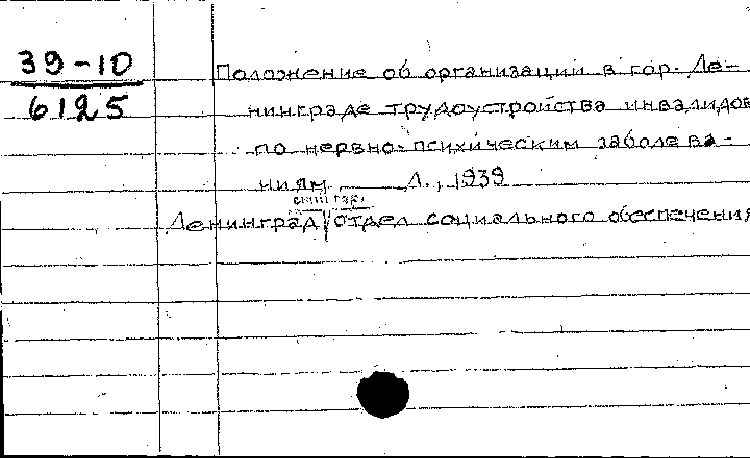 39-10
6125
Положение об организации в гор. Ле-
нинграде трудоустройства инвалидов
по нервно-психическим заболева-
ниям. — Л., 1939
ский гор.
Ленинград отдел социального обеспечения